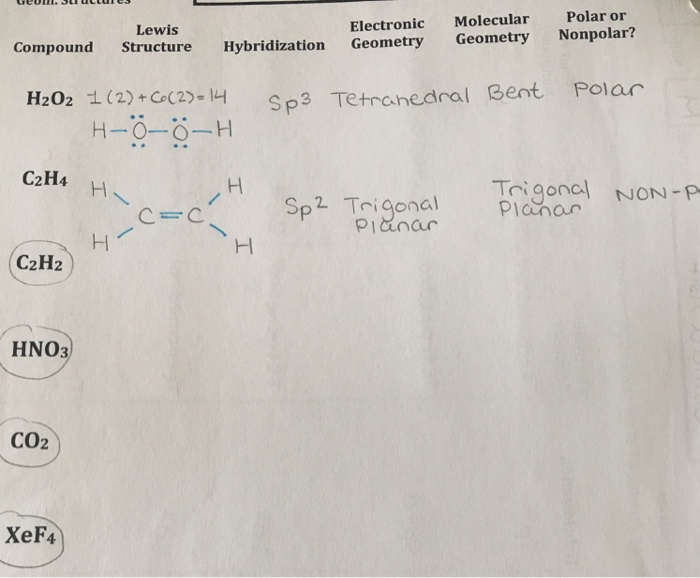 Geom. Structures
Compound Lewis Structure Hybridization Electronic Geometry Molecular Geometry Polar or Nonpolar?
H2O2 1(2)+6(2)=14 Sp3 Tetrahedral Bent Polar
H-O-O-H
C2H4 H H Sp2 Trigonal Planar Trigonal Planar NON-P
C=C
H H
C2H2
HNO3
CO2
XeF4